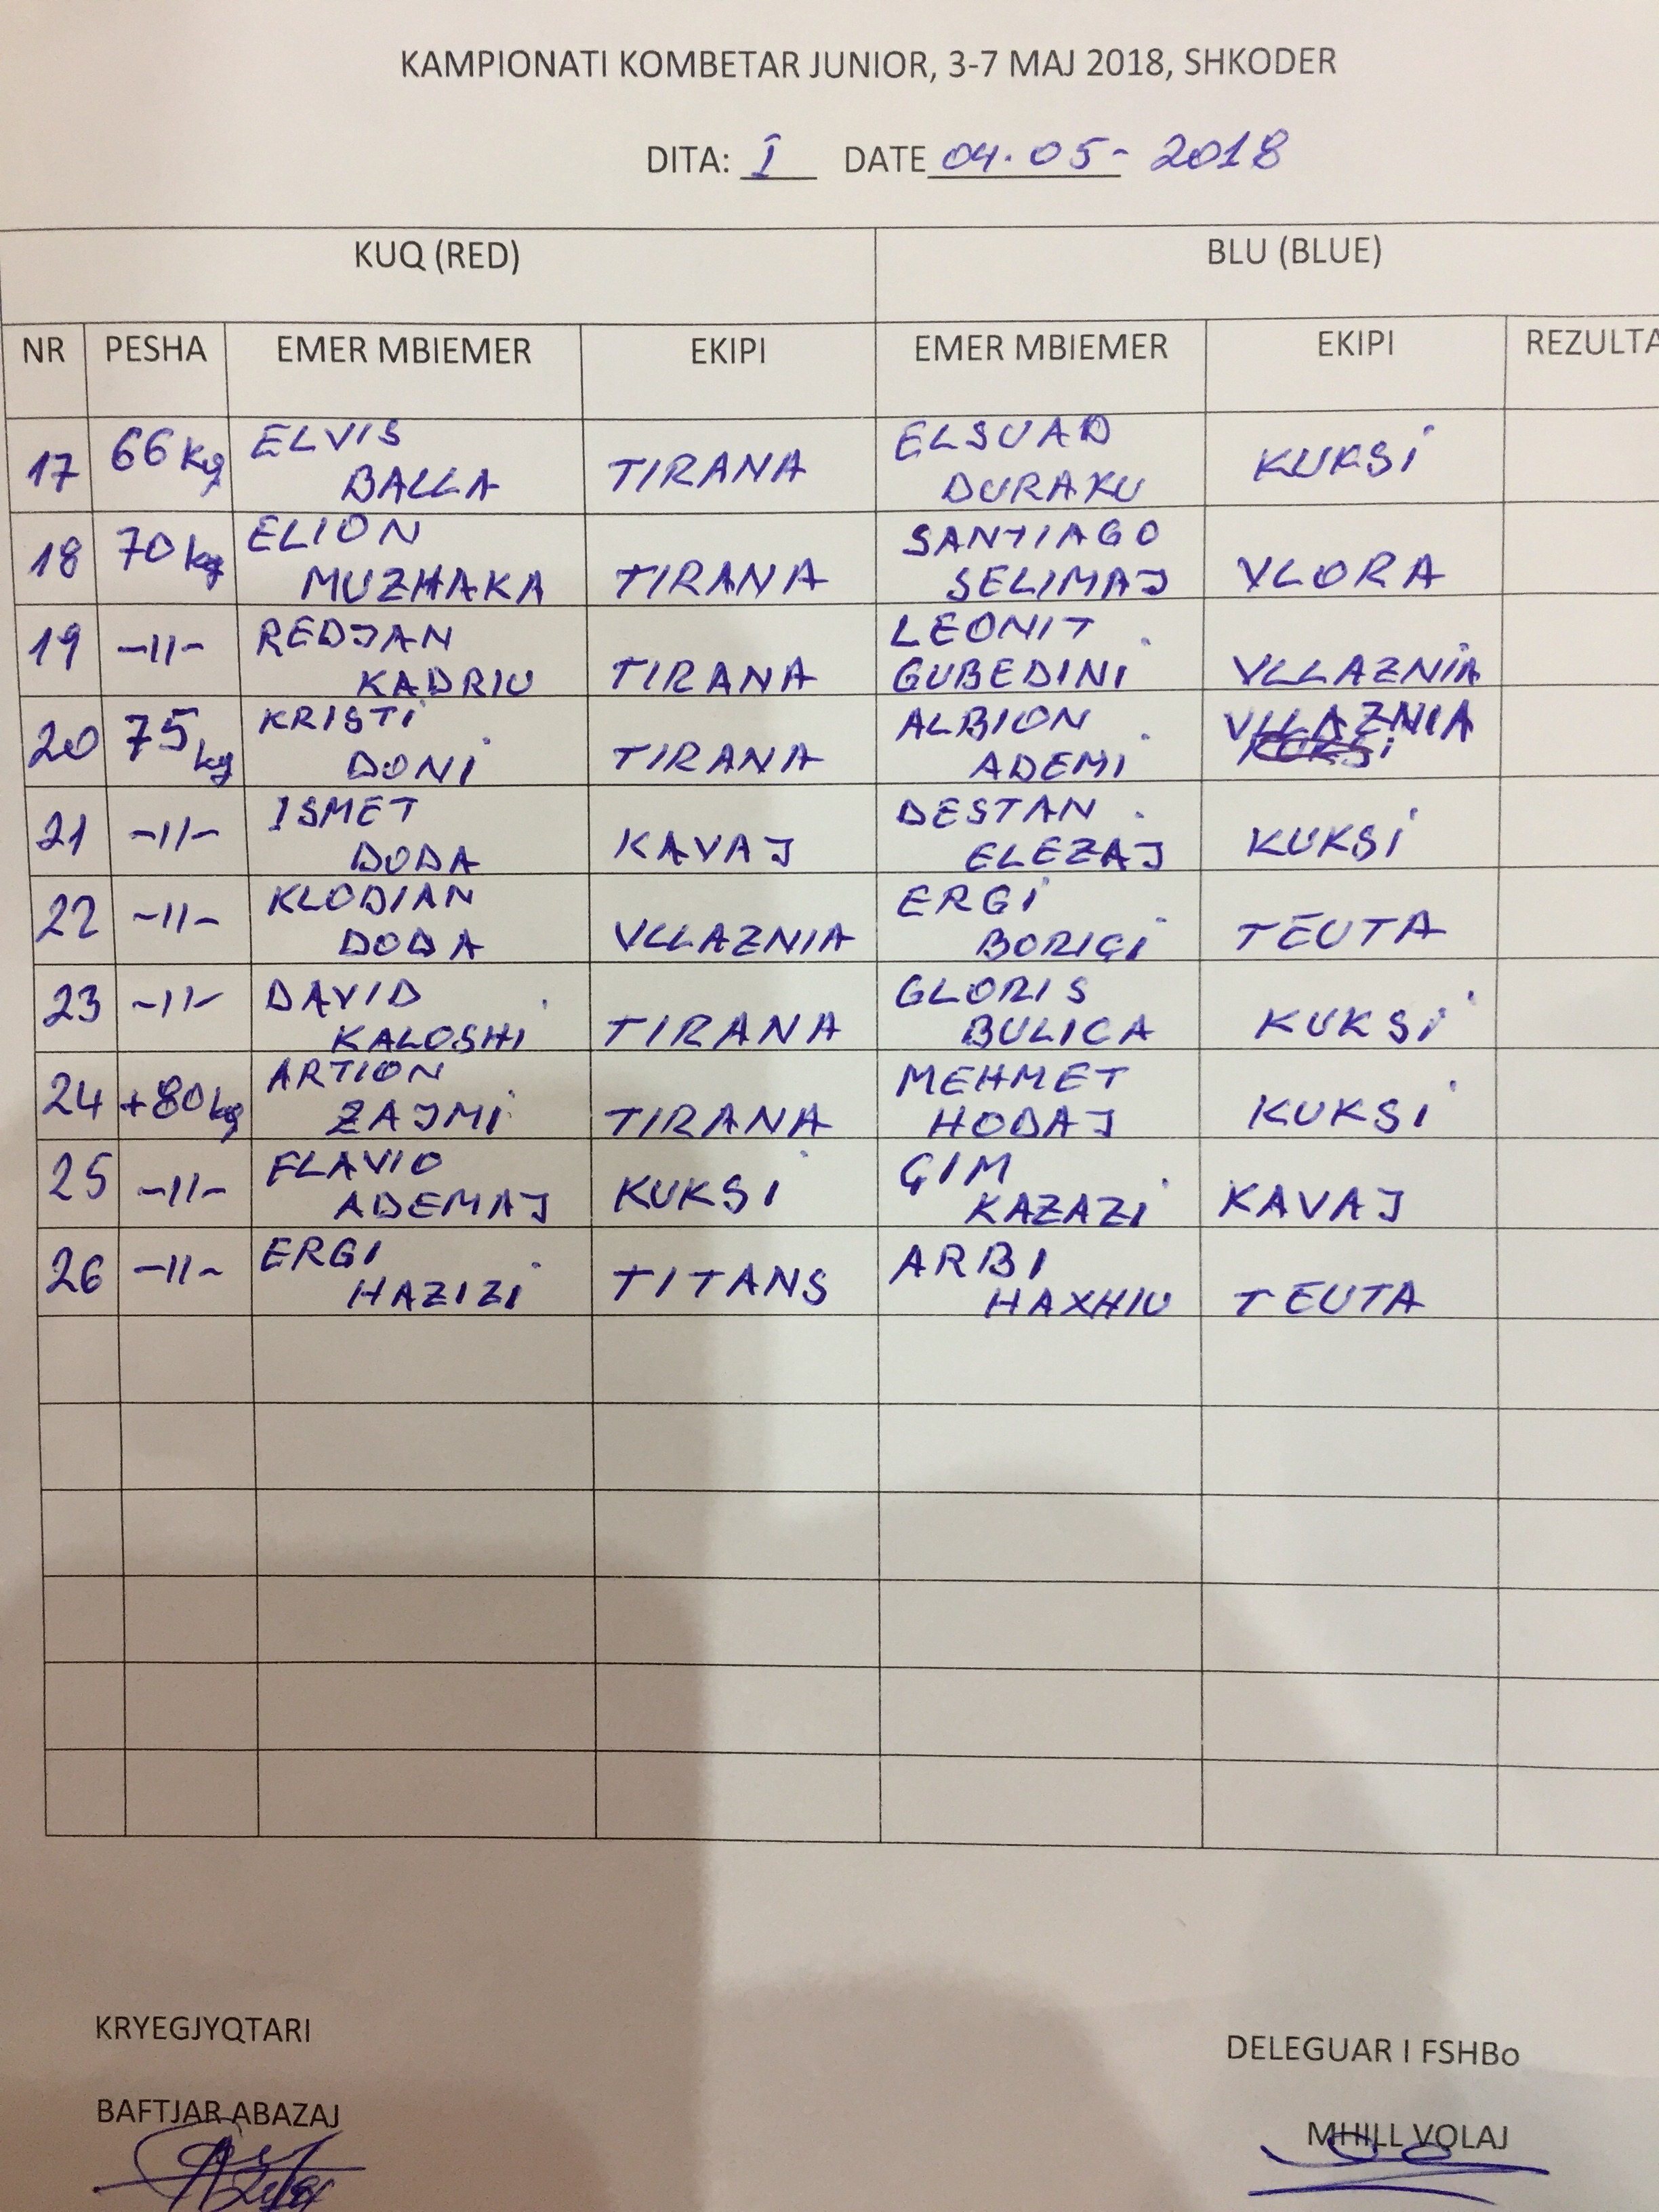 KAMPIONATI KOMBETAR JUNIOR, 3-7 MAJ 2018, SHKODER
DITA: I DATE 04.05-2018
KUQ (RED) BLU (BLUE)
NR PESHA EMER MBIEMER EKIPI EMER MBIEMER EKIPI REZULTA
17 66 kg ELVIS BALLA TIRANA ELSUAD DURAKU KUKSI
18 70 kg ELION MUZHAKA TIRANA SANTIAGO SELIMAJ VLORA
19 -II- REDJAN KADRIU TIRANA LEONIT GUBEDINI VLLAZNIA
20 75 kg KRISTI DONI TIRANA ALBION ADEMI VLLAZNIA KUKSI
21 -II- ISMET DODA KAVAJ DESTAN ELEZAJ KUKSI
22 -II- KLODIAN DODA VLLAZNIA ERGI BORIÇI TEUTA
23 -II- DAVID KALOSHI TIRANA GLORIS BULICA KUKSI
24 +80 kg ARTION ZAJMI TIRANA MEHMET HODAJ KUKSI
25 -II- FLAVIO ADEMAJ KUKSI ÇIM KAZAZI KAVAJ
26 -II- ERGI HAZIZI TITANS ARBI HAXHIU TEUTA
KRYEGJYQTARI
DELEGUAR I FSHBo
BAFTJAR ABAZAJ
MHILL VOLAJ